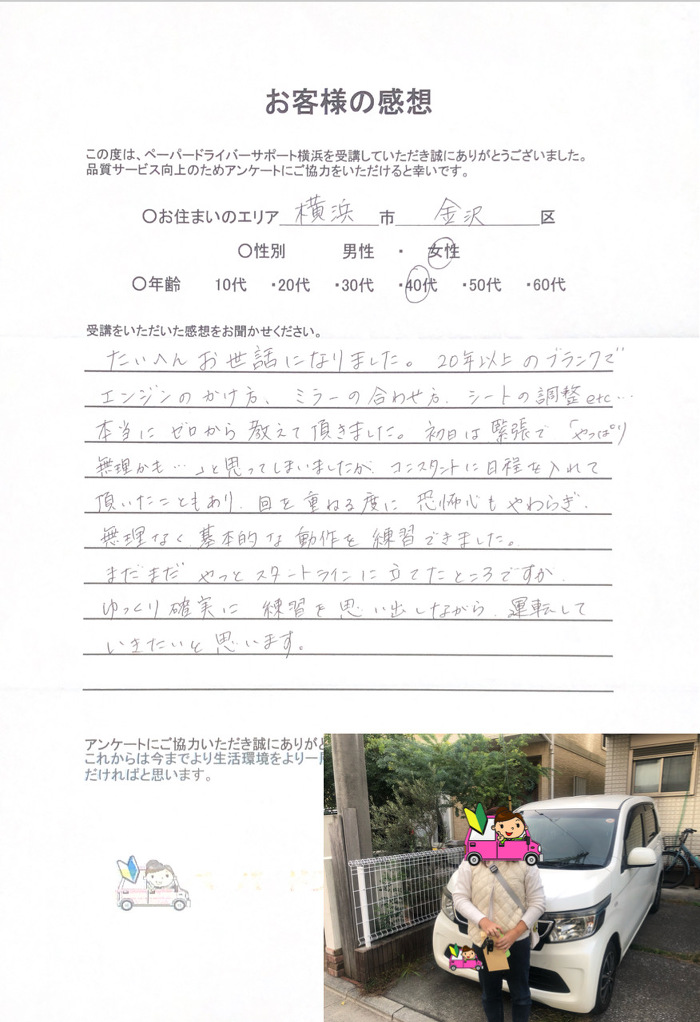 お客様の感想
この度は、ペーパードライバーサポート横浜を受講していただき誠にありがとうございました。
品質サービス向上のためアンケートにご協力をいただけると幸いです。
〇お住まいのエリア 横浜 市 金沢 区
〇性別 男性 ・ 女性
〇年齢 10代 ・20代 ・30代 ・40代 ・50代 ・60代
受講をいただいた感想をお聞かせください。
たいへんお世話になりました。20年以上のブランクで
エンジンのかけ方、ミラーの合わせ方、シートの調整etc…
本当にゼロから教えて頂きました。初日は緊張で「やっぱり
無理かも…」と思ってしまいましたが、コンスタントに日程を入れて
頂いたこともあり、回を重ねる度に恐怖心もやわらぎ、
無理なく基本的な動作を練習できました。
まだまだやっとスタートラインに立てたところですが、
ゆっくり確実に練習を思い出しながら、運転して
いきたいと思います。
アンケートにご協力いただき誠にありがと
これからは今までより生活環境をより一
だければと思います。